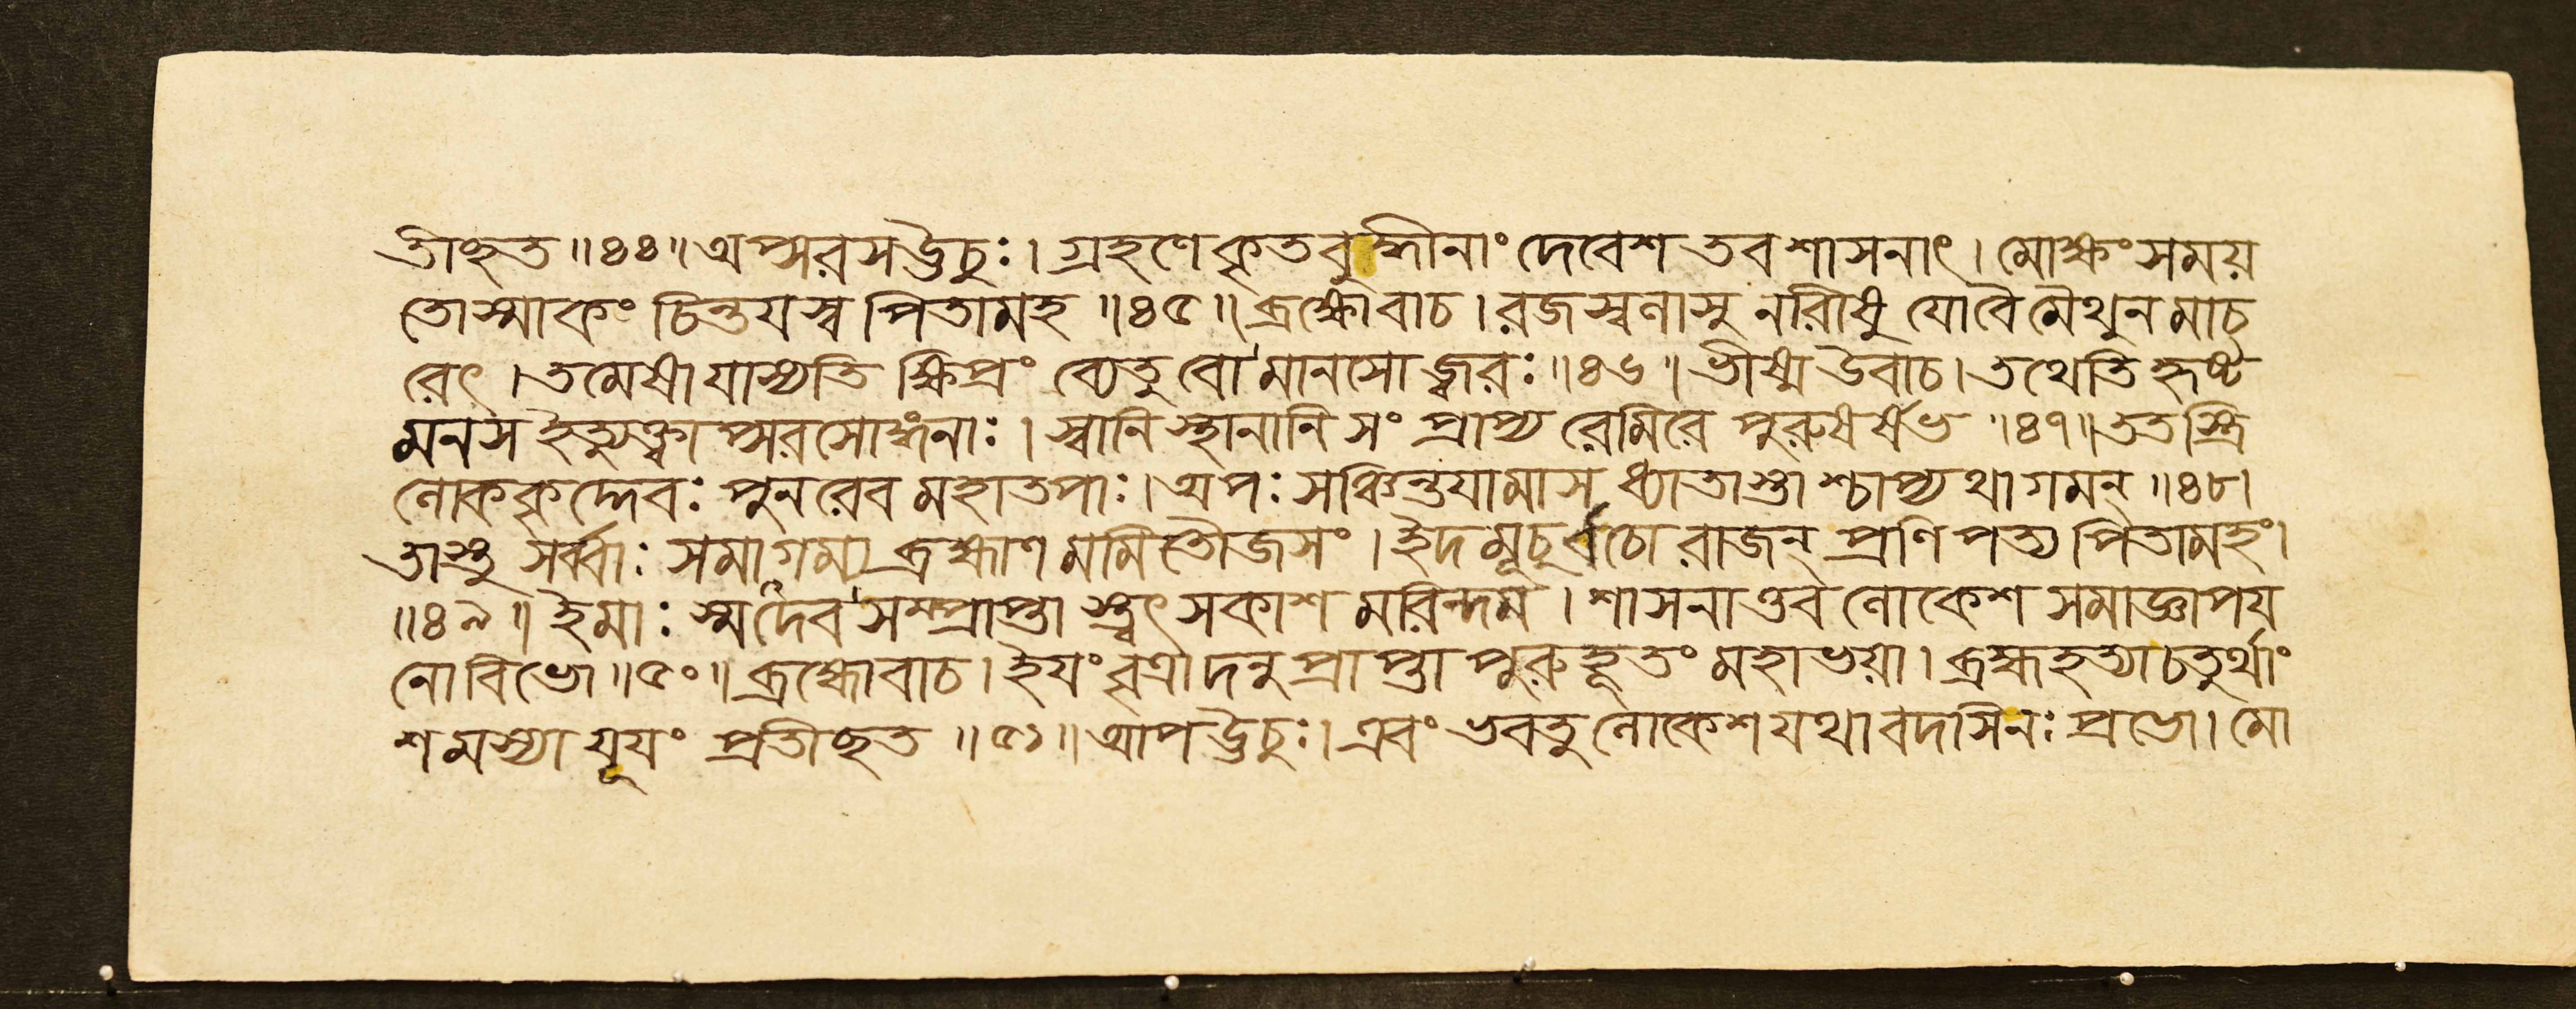 তীচ্ছত ॥৪৪॥ অপ্সরস ঊচুঃ। গ্রহণে কৃতবুদ্ধীনাং দেবেশ তব শাসনাৎ। মোক্ষং সময়
তোস্মাকং চিন্তয়স্ব পিতামহ ॥৪৫॥ ব্রহ্মোবাচ। রজস্বলাসু নারীষু যো বৈ মৈথুনমাচ
রেৎ। তমেষা যাস্যতি ক্ষিপ্রং ব্যেতু বো মানসো জ্বরঃ ॥৪৬॥ ভীষ্ম উবাচ। তথেতি হৃষ্ট
মনস ইত্যুক্ত্বাপ্সরসোঙ্গনাঃ। স্বানি স্থানানি সংপ্রাপ্য রেমিরে পুরুষর্ষভ ॥৪৭॥ ততস্ত্রি
লোককৃদ্দেবঃ পুনরেব মহাতপাঃ। অপঃ সঞ্চিন্তয়ামাস ধ্যাতাস্তাশ্চাপ্যথাগমন্ ॥৪৮।
তাস্তু সর্ব্বাঃ সমাগম্য ব্রহ্মাণমমিতৌজসং। ইদমূচুর্বচো রাজন্ প্রণিপত্য পিতামহং।
॥৪৯॥ ইমাঃ স্ম দেব সম্প্রাপ্তাস্ত্বৎসকাশমরিন্দম। শাসনাত্তব লোকেশ সমাজ্ঞাপয়
নো বিভো ॥৫০॥ ব্রহ্মোবাচ। ইয়ং বৃত্রাদনুপ্রাপ্তা পুরুহূতং মহাভয়া। ব্রহ্মহত্যা চতুর্থাং
শমস্যা যূয়ং প্রতীচ্ছত ॥৫১॥ আপ ঊচুঃ। এবং ভবতু লোকেশ যথা বদসি নঃ প্রভো। মো